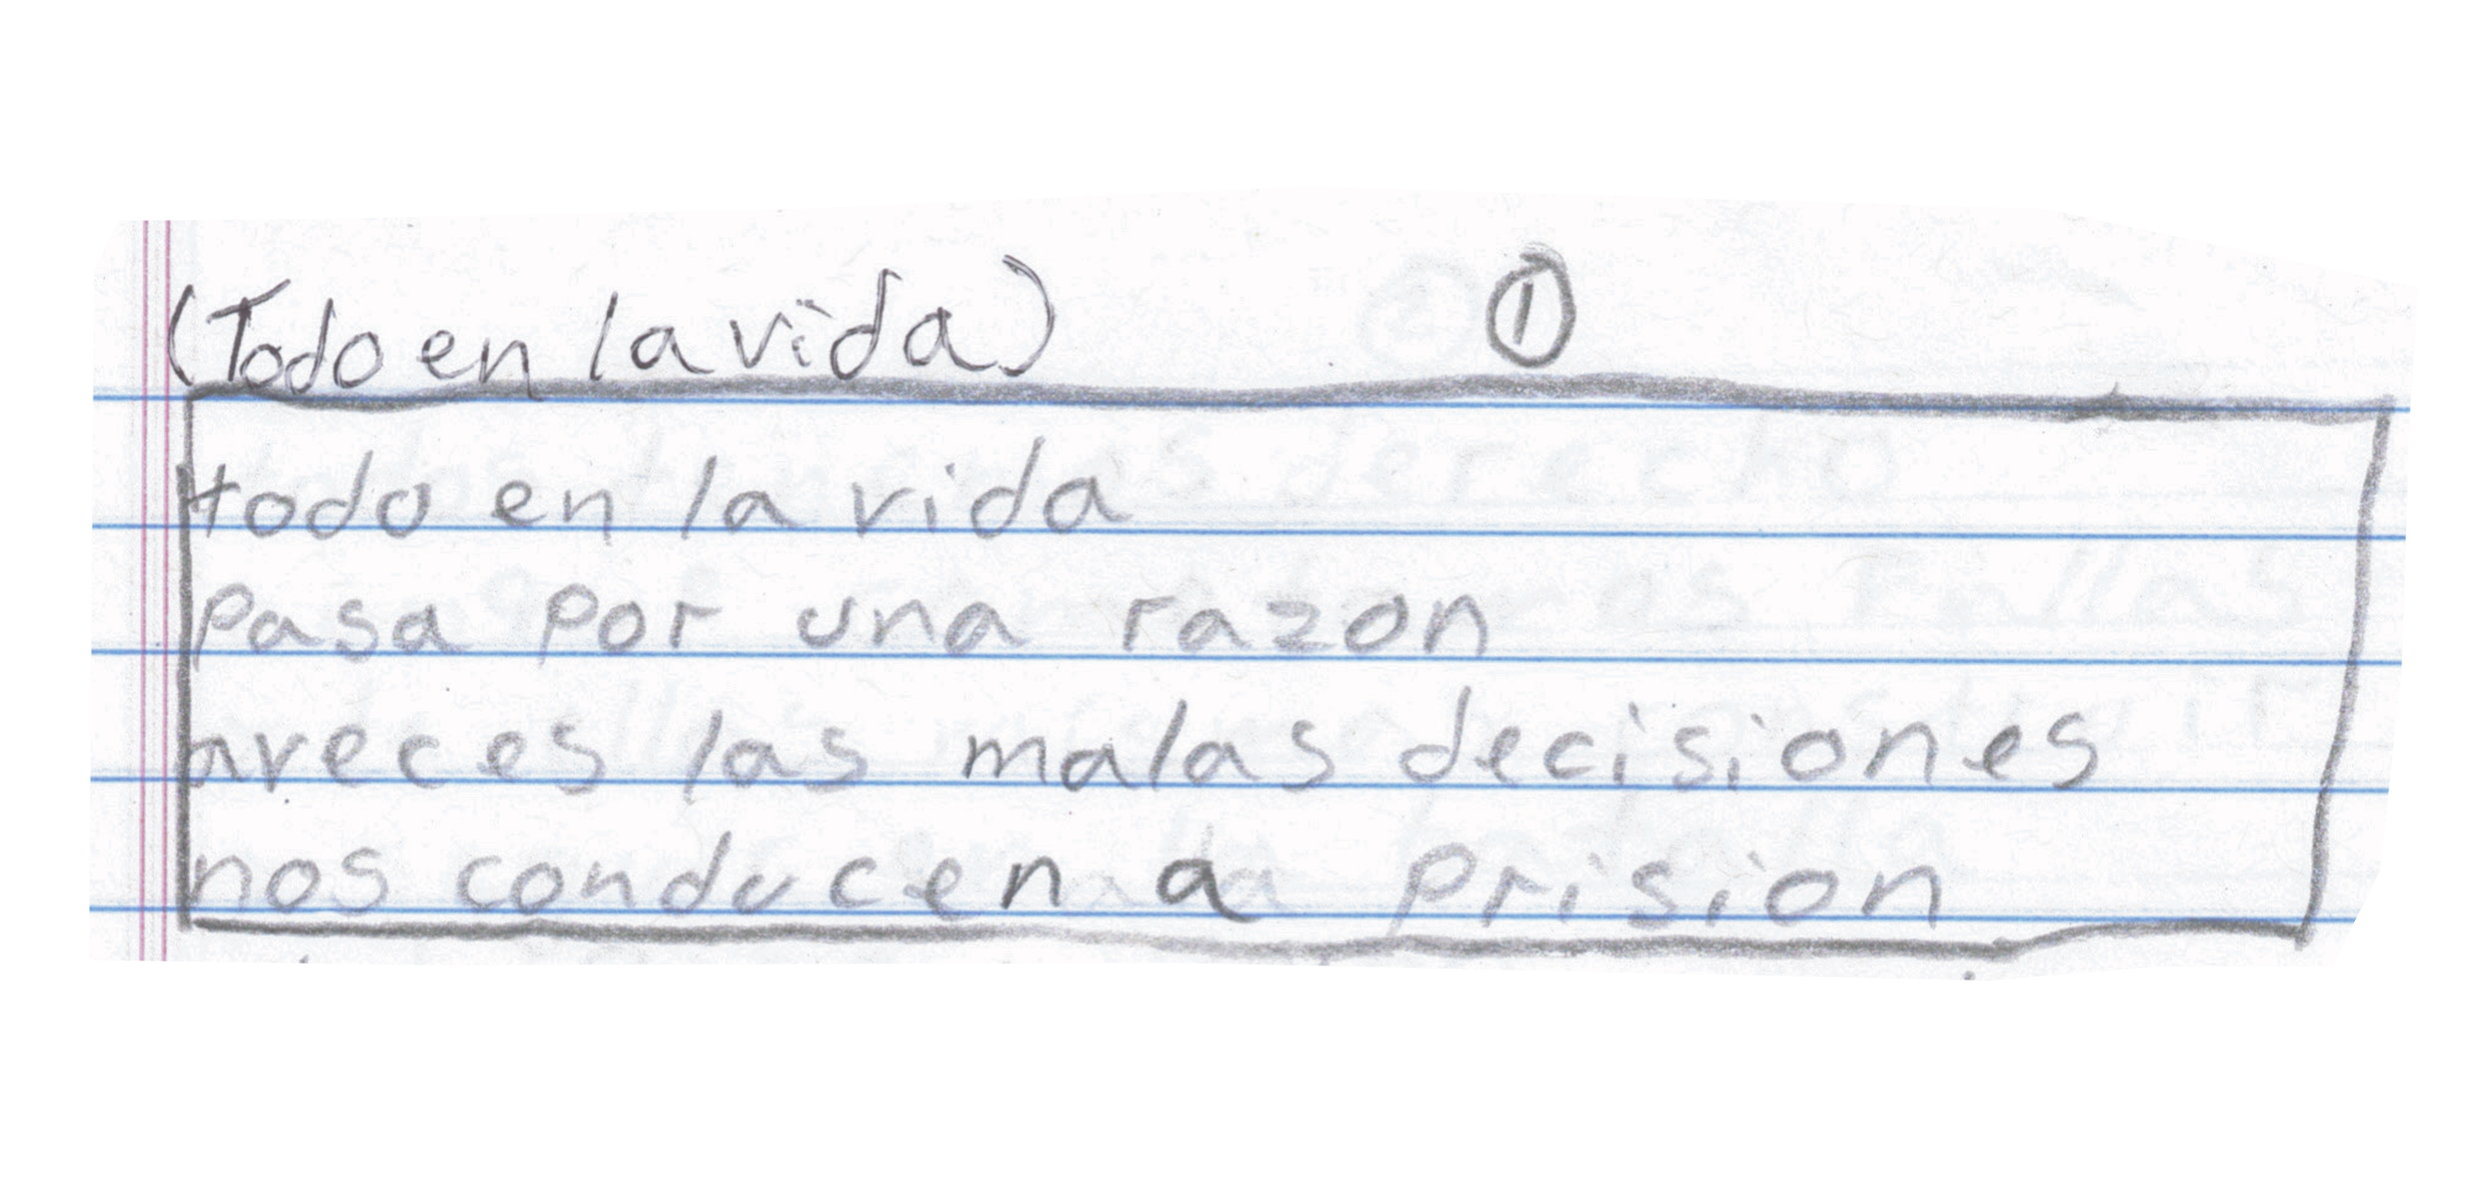 (Todo en la vida) ①
todo en la vida
pasa por una razon
aveces las malas decisiones
nos conducen a prision